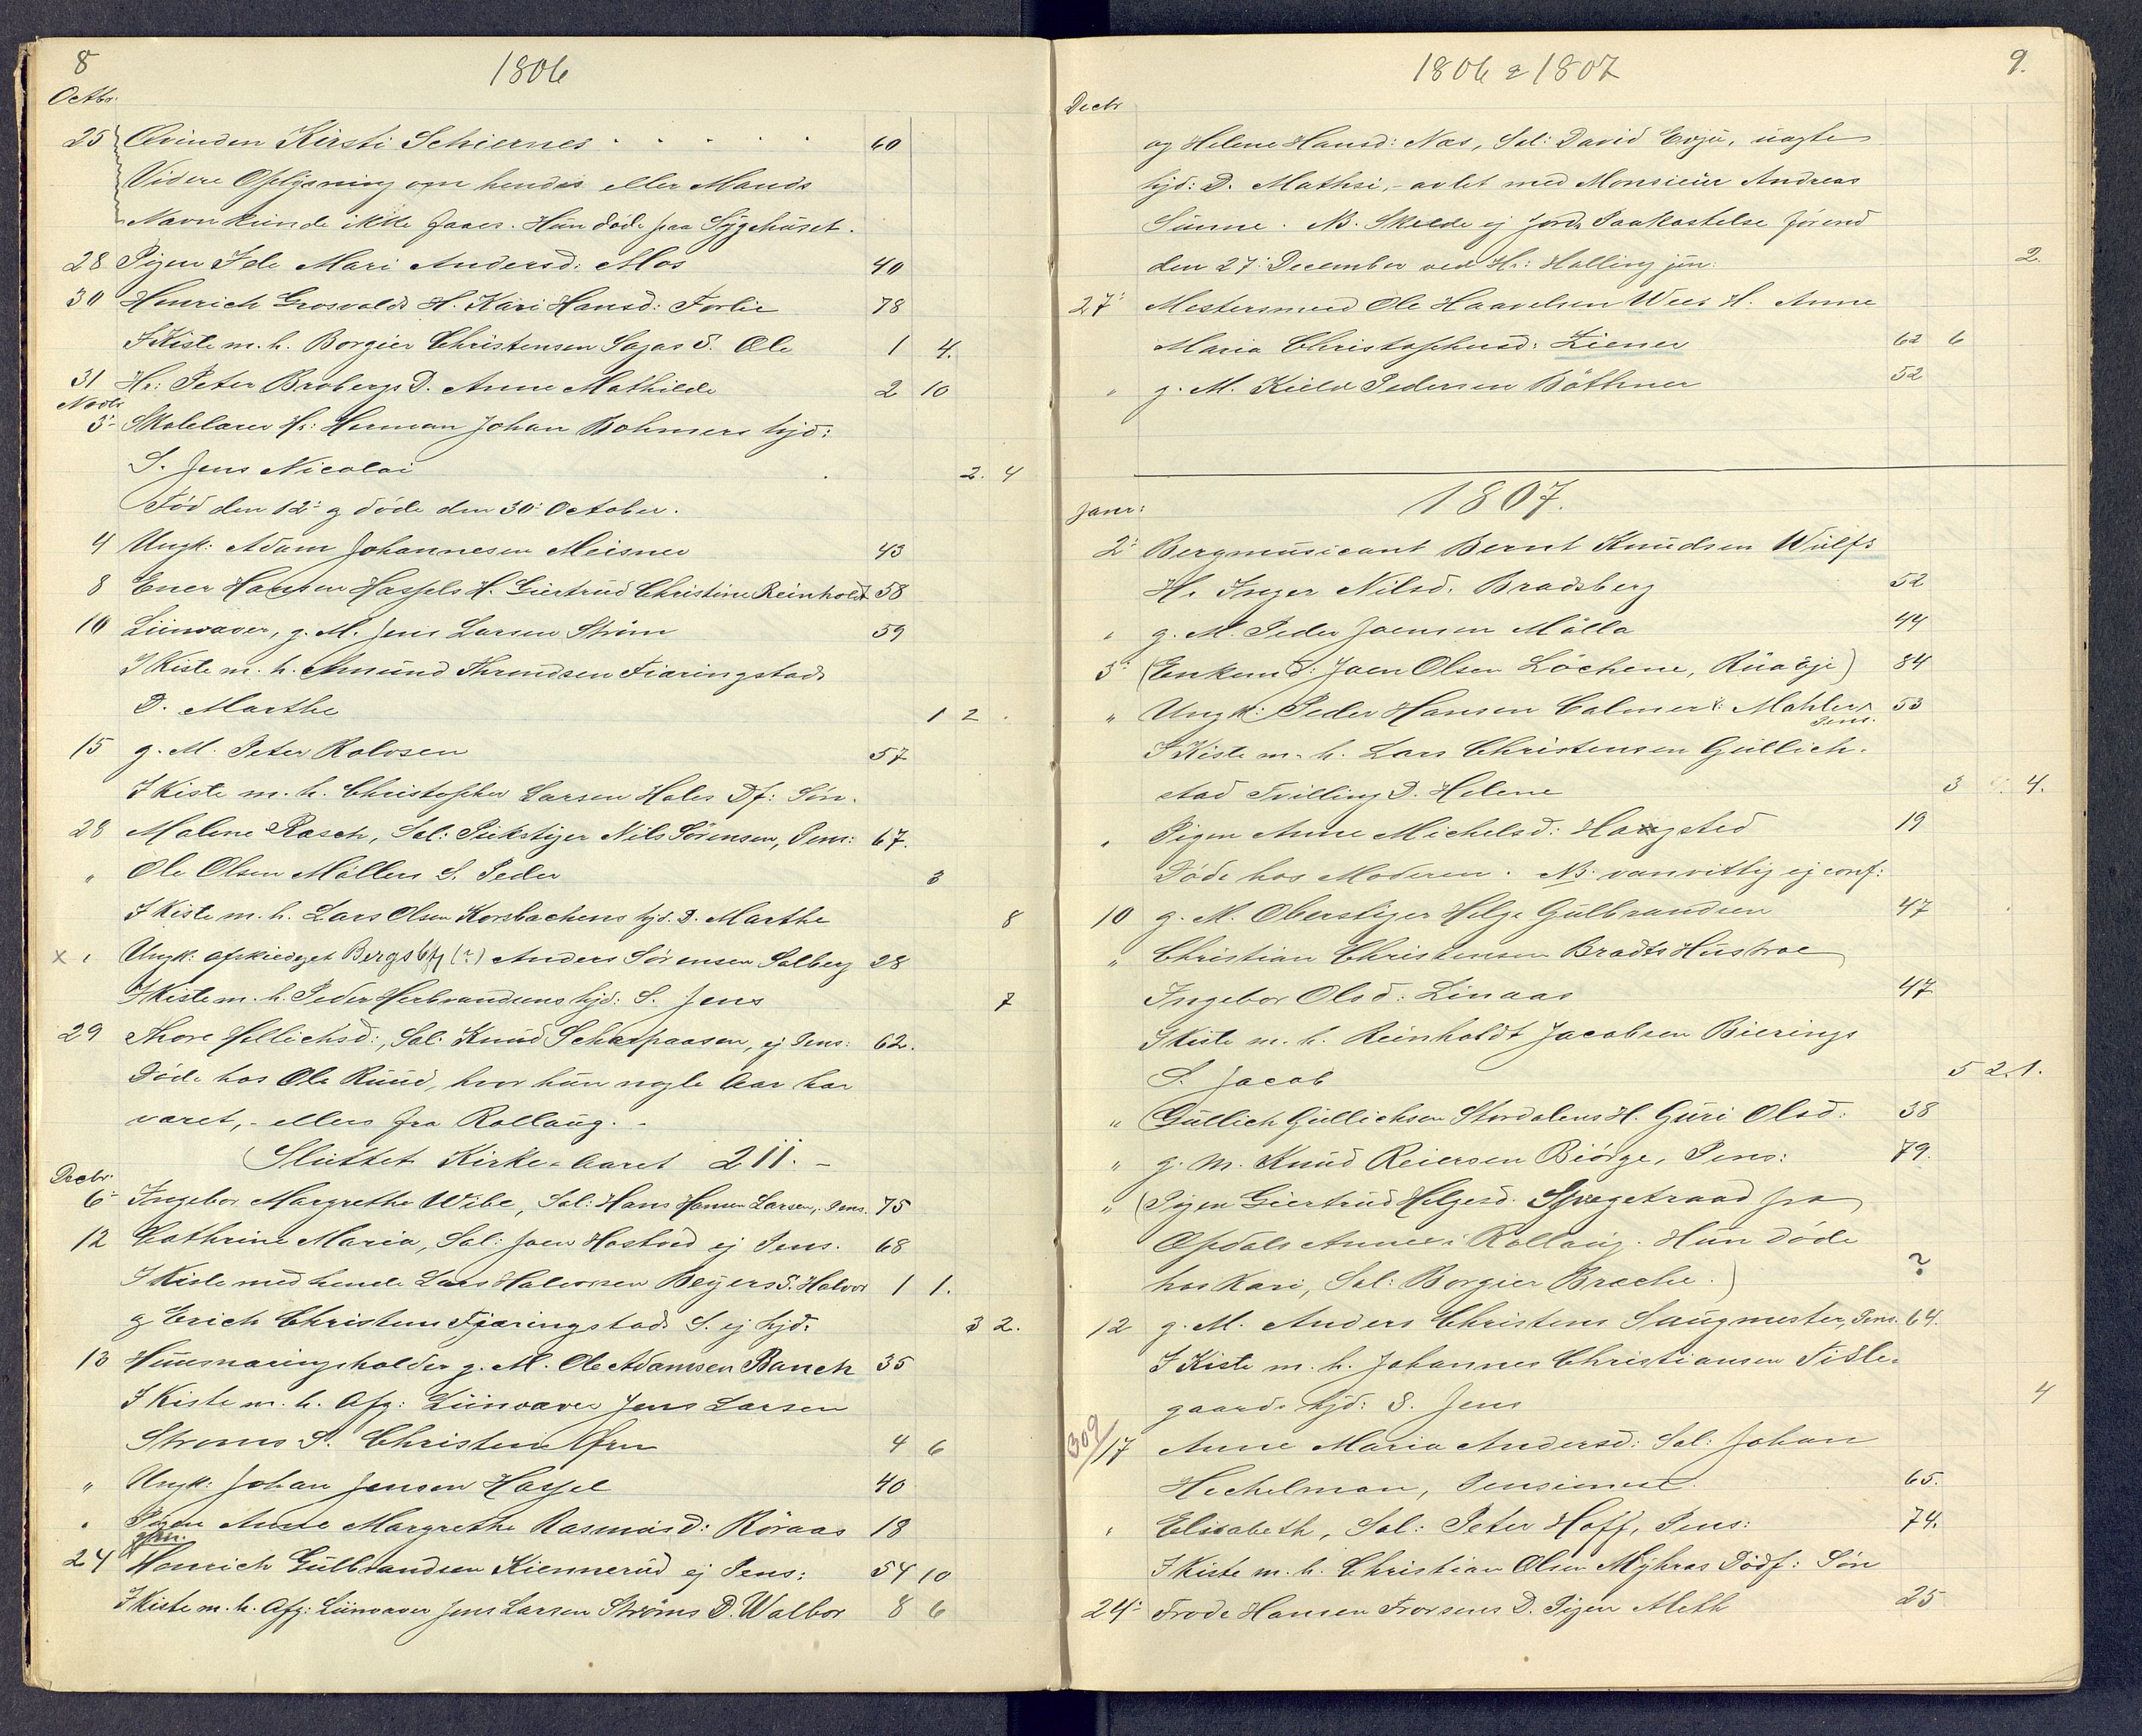 8
1806
Octbr.
25 Qvinden Kirsti Schiernes . . . . . . 60
Videre Oplysning om hendes eller Mands
Navn kunde ikke faaes. Hun döde paa Sÿgehuset.
28 Pigen Ide Mari Andersd: Mos 40
30 Henrich Grosvolds H. Kari Hansd: Forlie 78
I Kiste m. h. Borgier Christensen Sagas S. Ole 1 4.
31 Hr: Peter Brobergs D. Anne Mathilde 2 10
Novbr
3- Skolelærer Hr: Herman Johan Bohmers hjd:
S. Jens Nicolai 2. 4
Fód den 12: og döde den 30: October.
4 Ungk: Adam Johannesen Meisner 43
8 Ener Hansen Hassels H. Giertrud Christine Reinholdt 58
10 Linvæver, g. M. Jens Larsen Ström 59
I Kiste m. h. Amund Throndsen Fiæringstads
D. Marthe 1 2
15 g. M. Peter Rolvsen 57
I Kiste m. h. Christopher Larsen Holes Df: Sön.
28 Malene Rasch, Sal: Pukstiger Nils Sörensen, Pens: 67.
" Ole Olsen Möllers S. Peder 3
I Kiste m. h. Lars Olsen Korsbachens hjd. D. Marthe 8
x " Ungk: afskediget Bergsbfl (?) Anders Sörensen Solberg 28
I Kiste m. h. Peder Herbrandsens hjd: S. Jens 7
29 Thore Gellichsd:, Sal: Knud Scharpaasen, ej Pens: 62.
Döde hos Ole Ruud, hvor hun nogle Aar har
været, - ellers fra Rollaug. -
Sluttet Kirke-Aaret 211. -
Decbr.
6- Ingebor Margrethe Wibe, Sal: Hans Hansen Larsen, Pens. 75
12 Cathrine Maria, Sal: Joen Hostvid ej Pens. 68
I Kiste med hende Lars Halvorsen Beÿers S. Halvor 1 1.
og Erich Christens Fjæringstads S. ej hjd. 3 2.
13 Huusnæringsholder g. M. Ole Adamsen Banch 35
I Kiste m. h. Afg: Linvæver Jens Larsen
Ströms S. Christen Örn 4 6
" Ungk: Johan Jensen Hassel 40
" Pigen Anne Margrethe Rasmusd: Röraas 18
24 gfm. Henrich Gulbrandsen Kiennerud ej Pens: 54 10
I Kiste m. h. Afg: Linvæver Jens Larsen Ströms D. Walbor 8 6
1806 & 1807
9.
Decbr
og Helene Hansd: Næs, Sal: David Evju, uægte
hjd: D. Mathsi, - avlet med Monsieur Andreas
Sunne. NB. Skeede ej Jords Paakastelse förend
den 27: December ved Hr: Halling jun: 2.
27: Mestersmed Ole Haavelsen Wees H. Anne
Maria Christophersd: Ziener 62 6
" g. M. Kield Pedersen Böttner 52
Janr: 1807.
2: Bergmusicant Bernt Knudsen Wulfs
H. Inger Nilsd. Bradsberg 52
" g. M. Peder Joensen Mölla 44
5: (Enkemd: Joen Olsen Löchene, Ruaöje) 84
" Ungk: Peder Hansen Calmer : Mahler Pens. 53
I Kiste m. h. Lars Christensen Gullich-
stad Tvilling D. Helene 3 4.
" Pigen Anne Michelsd: Haugsted 19
Döde hos Moderen. NB. vanvittig ej conf:
10 g. M. Oberstiger Helge Gulbrandsen 47
" Christian Christensen Bradts Hustroe
Ingebor Olsd: Linaas 47
I Kiste m. h. Reinholdt Jacobsen Bierings
S. Jacob 5 2. 1.
" Gullich Gullichsen Stordalens H. Guri Olsd: 38
" g. M. Knud Reiersen Biörge, Pens: 79.
" (Pigen Giertrud Helgesd. Sprægetraad fra
Opdals Annex i Rollaug. Hun döde
hos Kari, Sal: Borgier Bræche.) ?
12 g. M. Anders Christens Saugmester, Pens. 64.
I Kiste m. h. Johannes Christiansen Tisle-
gaards hjd: S. Jens 4
309
17 Anne Maria Andersd: Sal: Johan
Hechelman, Pensionist 65.
" Elisabeth, Sal: Peter Hoff, Pens: 74.
I Kiste m. h. Christian Olsen Mÿhras Dödf: Sön
24: Frode Hansen Frorsens D. Pigen Aleth 25